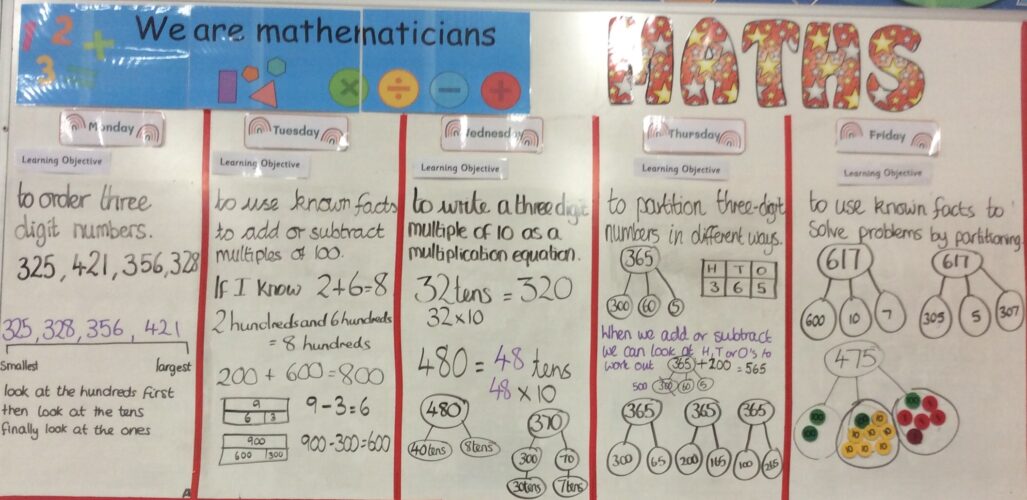 We are mathematicians
MATHS
1 2 3 + =
× ÷ − +
Monday
Learning Objective
to order three
digit numbers.
325, 421, 356, 328
325, 328, 356, 421
Smallest largest
look at the hundreds first
then look at the tens
finally look at the ones
Tuesday
Learning Objective
to use known facts
to add or subtract
multiples of 100.
If I know 2+6=8
2 hundreds and 6 hundreds
= 8 hundreds
200 + 600 = 800
9
6 3
9-3=6
900
600 300
900-300=600
Wednesday
Learning Objective
to write a three digit
multiple of 10 as a
multiplication equation.
32 tens = 320
32 x 10
480 = 48 tens
48 x 10
480
40 tens 8 tens
370
300 70
30 tens 7 tens
Thursday
Learning Objective
to partition three-digit
numbers in different ways.
365
300 60 5
H T O
3 6 5
When we add or subtract
we can look at H, T or O's to
work out 365 + 200 = 565
500 60 5
365 365 365
300 65 200 165 100 265
Friday
Learning Objective
to use known facts to
solve problems by partitioning
617 617
600 10 7 305 5 307
475
100 100
100 10 10 10 10 10 10 10
100 1 1 1 1